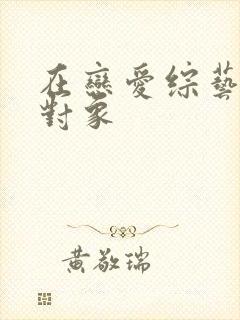 在戀愛綜藝
對象
黃敬瑞